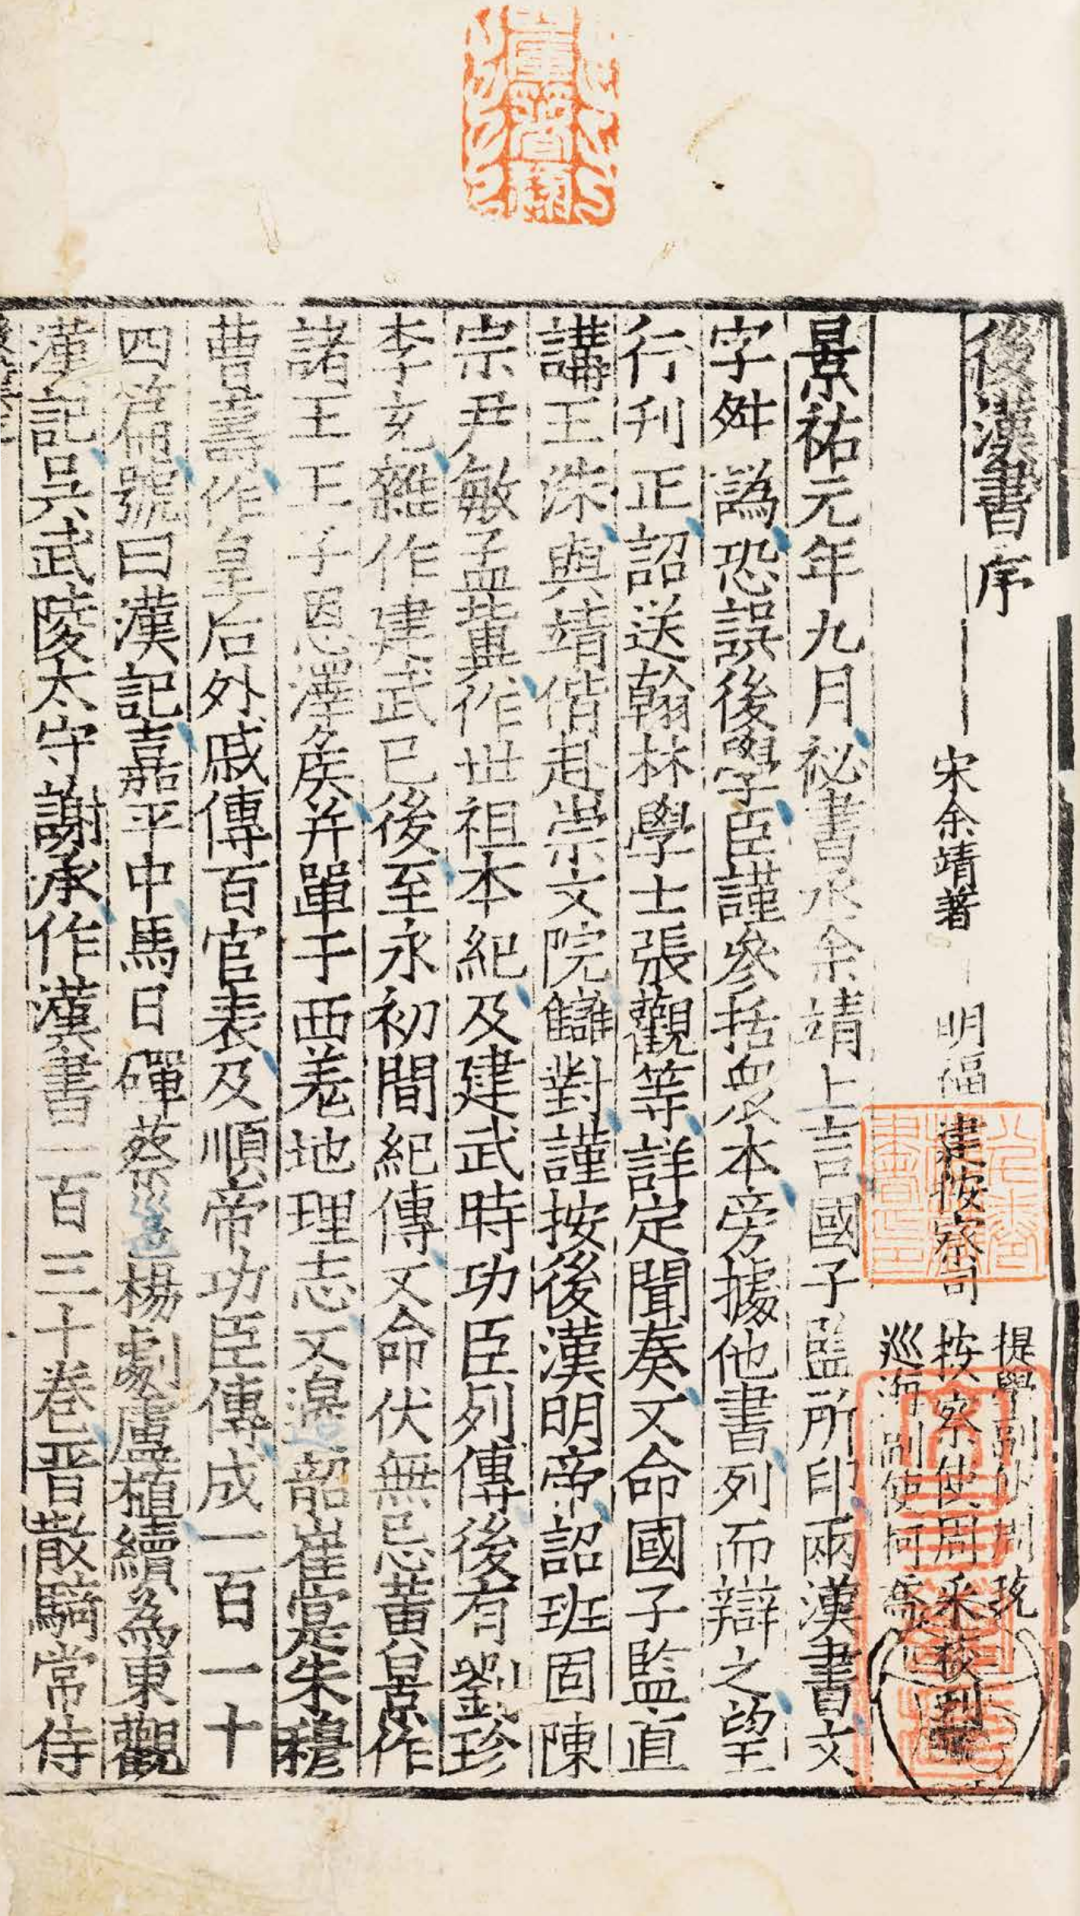 後漢書序
宋余靖著 明福建按察司
提學副使周珫
按察使周采校刊
巡海副使柯喬
景祐元年九月祕書丞余靖上言國子監所印兩漢書文
字舛譌恐誤後學臣謹參括衆本旁據他書列而辯之望
行刋正詔送翰林學士張觀等詳定聞奏又命國子監直
講王洙與靖偕赴崇文院讎對謹按後漢明帝詔班固陳
宗尹敏孟冀作世祖本紀及建武時功臣列傳後有劉珍
李充雜作建武已後至永初間紀傳又命伏無忌黃景作
諸王王子恩澤矦并單于西羌地理志又邊韶崔寔朱穆
曹壽作皇后外戚傳百官表及順帝功臣傳成一百一十
四篇號曰漢記嘉平中馬日磾蔡邕楊劇盧植續為東觀
漢記吳武陵太守謝承作漢書一百三十卷晉散騎常侍